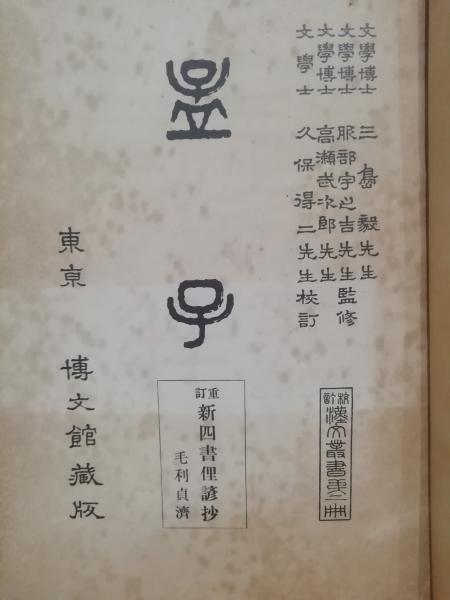 文學博士 三島毅先生
文學博士 服部宇之吉先生監修
文學博士 高瀬武次郎先生
文學士 久保得二先生校訂
校訂漢文叢書第二冊
孟子
重訂 新四書俚諺抄
毛利貞濟
東京 博文館藏版